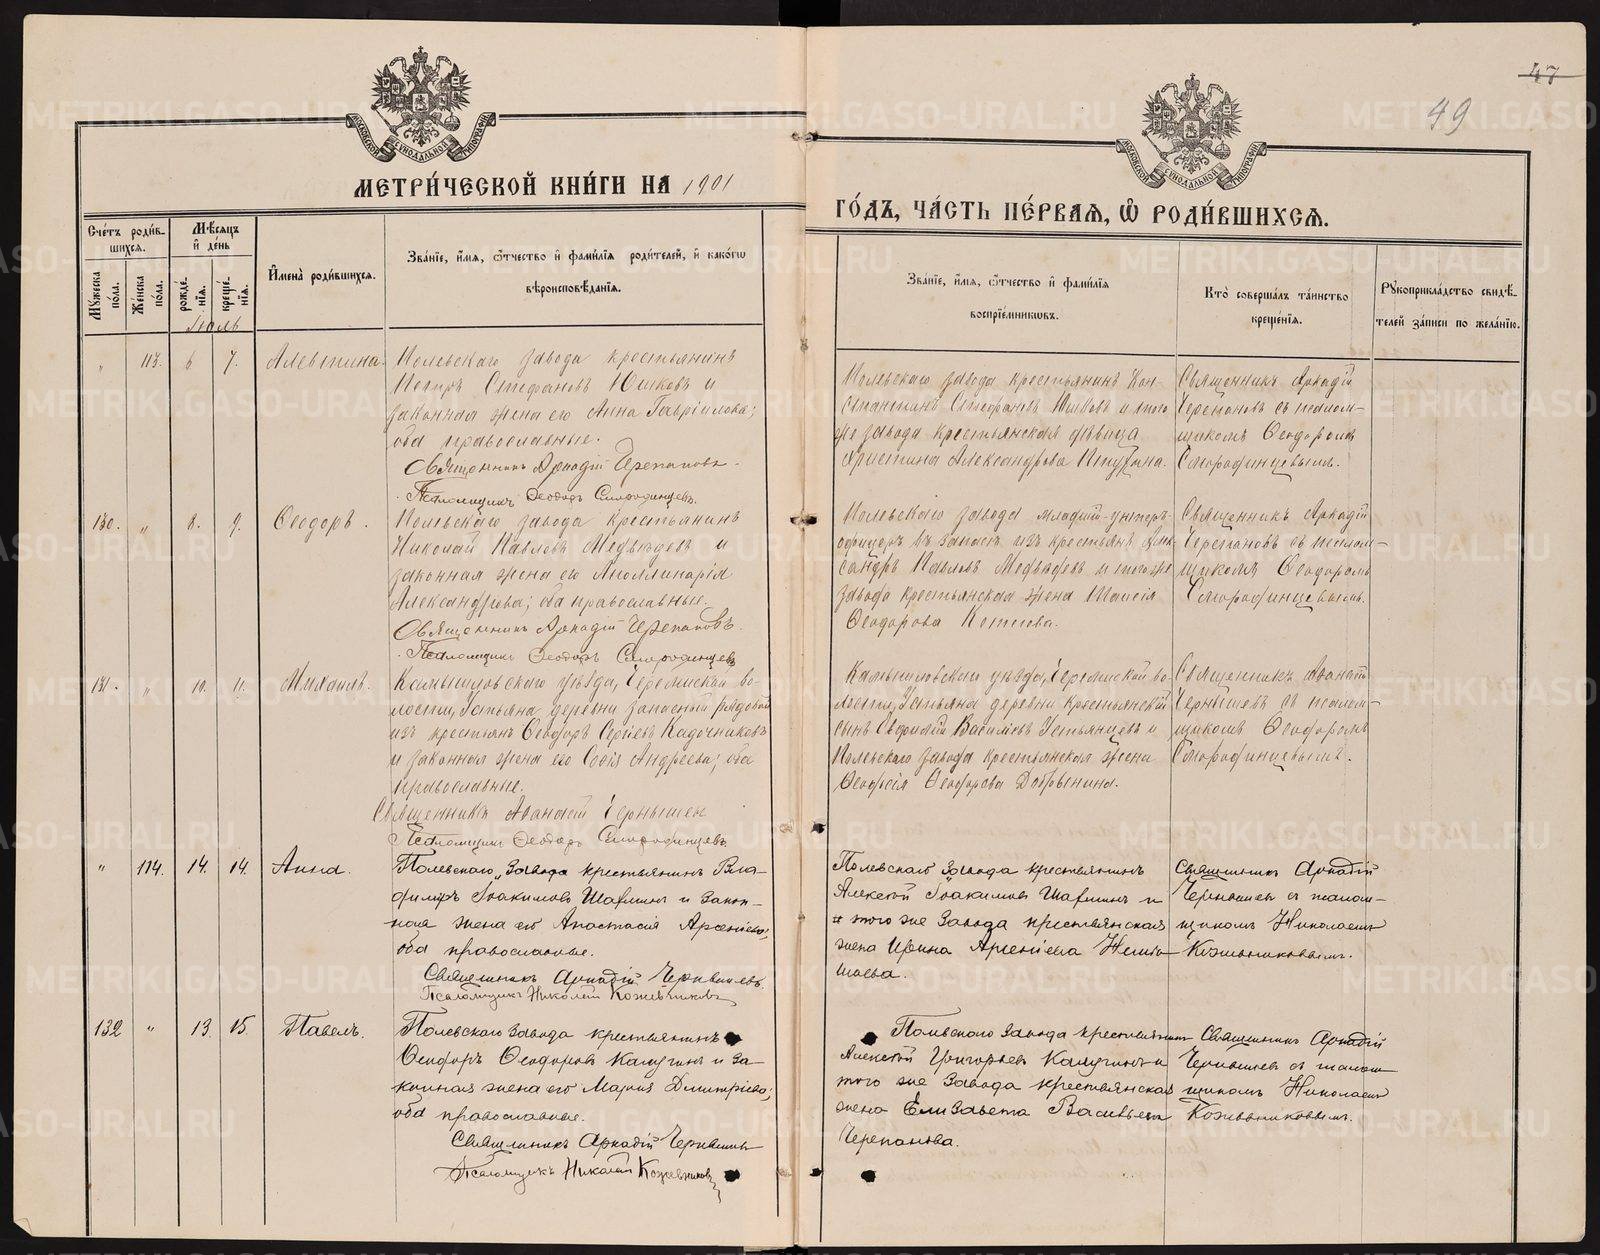 47
49
МОСКОВСКОЙ СѴНОДАЛЬНОЙ ТИПОГРАФІИ
МОСКОВСКОЙ СѴНОДАЛЬНОЙ ТИПОГРАФІИ
МЕТРИ́ЧЕСКОЙ КНИ́ГИ НА 1901
ГО́ДЪ, ЧА́СТЬ ПЕ́РВАѦ, Ѡ҆ РОДИ́ВШИХСѦ.
Сче́тъ роди́в-
шихсѧ.
Мꙋ́жеска по́ла.
Же́нска по́ла.
Мѣ́сѧцъ
и҆ де́нь
рожде́нїѧ.
креще́нїѧ.
Іюль
И҆мена̀ роди́вшихсѧ.
Зва́нїе, и҆́мѧ, ѻ҆́тчество и҆ фами́лїѧ роди́телей, и҆ како́гѡ
вѣроисповѣ́данїѧ.
Зва́нїе, и҆́мѧ, ѻ҆́тчество и҆ фами́лїѧ
воспрїе́мникѡвъ.
Кто̀ соверша́лъ та́инство
креще́нїѧ.
Рꙋкоприкла́дство свидѣ́-
телей за́писи по жела́нїю.
„ 113. 6 7. Алевтина.
Полевскаго завода крестьянинъ
Петръ Стефановъ Юшковъ и
законная жена его Анна Гавріилова;
оба православные.
Священникъ Аркадій Черепановъ.
Псаломщикъ Ѳеодоръ Смородинцевъ.
Полевскаго завода крестьянинъ Кон-
стантинъ Стефановъ Юшковъ и того
же завода крестьянская дѣвица
Христина Александрова
Священникъ Аркадій
Черепановъ съ псалом-
щикомъ Ѳеодоромъ
Смородинцевымъ.
130. „ 8. 9. Ѳеодоръ.
Полевскаго завода крестьянинъ
Николай Павловъ Медвѣдевъ и
законная жена его Аполлинарія
Александрова; оба православные.
Священникъ Аркадій Черепановъ.
Псаломщикъ Ѳеодоръ Смородинцевъ
Полевскаго завода младшій унтеръ-
офицеръ въ запасѣ изъ крестьянъ Алек-
сандръ Павловъ Медвѣдевъ и того же
завода крестьянская жена Таисія
Ѳеодорова
Священникъ Аркадій
Черепановъ съ псалом-
щикомъ Ѳеодоромъ
Смородинцевымъ.
131. „ 10. 11. Михаилъ.
Камышловскаго уѣзда, Черемиской во-
лости, деревни запасный рядовой
изъ крестьянъ Ѳеодоръ Сергіевъ Кадочниковъ
и законная жена его Софія Андреева; оба
православные.
Священникъ Аѳанасій Чернышевъ
Псаломщикъ Ѳеодоръ Смородинцевъ
Камышловскаго уѣзда, Черемиской во-
лости, деревни крестьянскій
сынъ Василіевъ Устьянцевъ и
Полевскаго завода крестьянская жена
Ѳеодорова Добрынина.
Священникъ Аѳанасій
Чернышевъ съ псалом-
щикомъ Ѳеодоромъ
Смородинцевымъ.
„ 114. 14. 14. Анна.
Полевского завода крестьянинъ Вла-
диміръ Іоакимовъ Шаршинъ и закон-
ная жена его Анастасія Арсеніева;
оба православные.
Священникъ Аркадій
Псаломщикъ Николай Кожевниковъ
Полевского завода крестьянинъ
Алексѣй Іоакимовъ Шаршинъ и
того же завода крестьянская
жена Ирина Арсеніева
Священникъ Аркадій
съ псалом-
щикомъ Николаемъ
Кожевниковымъ.
132 „ 13. 15. Павелъ.
Полевского завода крестьянинъ
Ѳеодоръ Ѳеодоровъ Калугинъ и за-
конная жена его Марія Димитріева;
оба православные.
Священникъ Аркадій
Псаломщикъ Николай Кожевниковъ
Полевского завода крестьянинъ
Алексѣй Григорьевъ Калугинъ и
того же завода крестьянская
жена Елизавета Васильева
Черепанова.
Священникъ Аркадій
съ псалом-
щикомъ Николаемъ
Кожевниковымъ.
METRIKI.GASO-URAL.RU